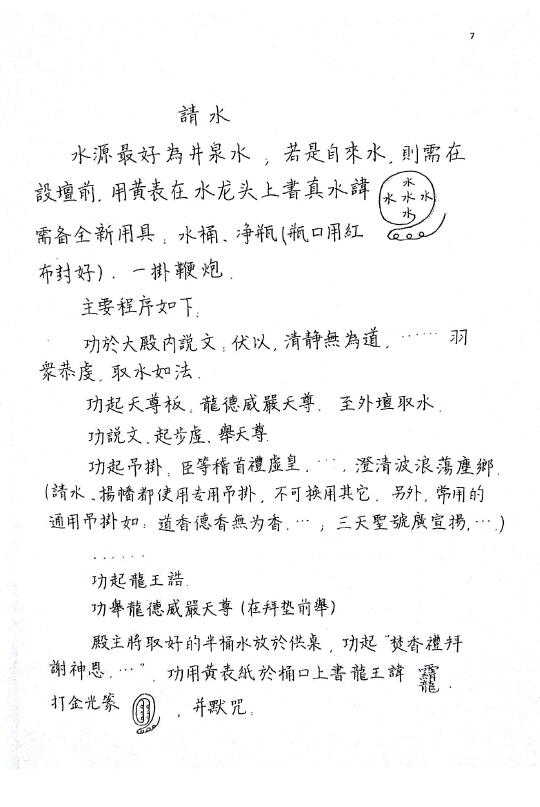 7
請水
水源最好為井泉水，若是自來水，則需在
設壇前，用黃表在水龙头上書真水諱
水
水 水 水
水
需备全新用具：水桶、净瓶(瓶口用紅
布封好)、一掛鞭炮.
主要程序如下:
功於大殿内說文：伏以，清靜無為道，…… 羽
衆恭虔，取水如法.
功起天尊板，龍德威嚴天尊. 至外壇取水.
功說文、起步虛、舉天尊.
功起吊掛：臣等稽首禮虛皇，…，澄清波浪蕩塵鄉.
(請水、揚幡都使用专用吊掛，不可换用其它. 另外，常用的
通用吊掛如：道香德香無为香.…；三天聖號廣宣揚，….)
......
功起龍王誥.
功舉龍德威嚴天尊(在拜垫前舉)
殿主將取好的半桶水放於供桌，功起"焚香禮拜
謝神恩，…"，功用黃表紙於桶口上書龍王諱
打金光篆 ，并默咒.